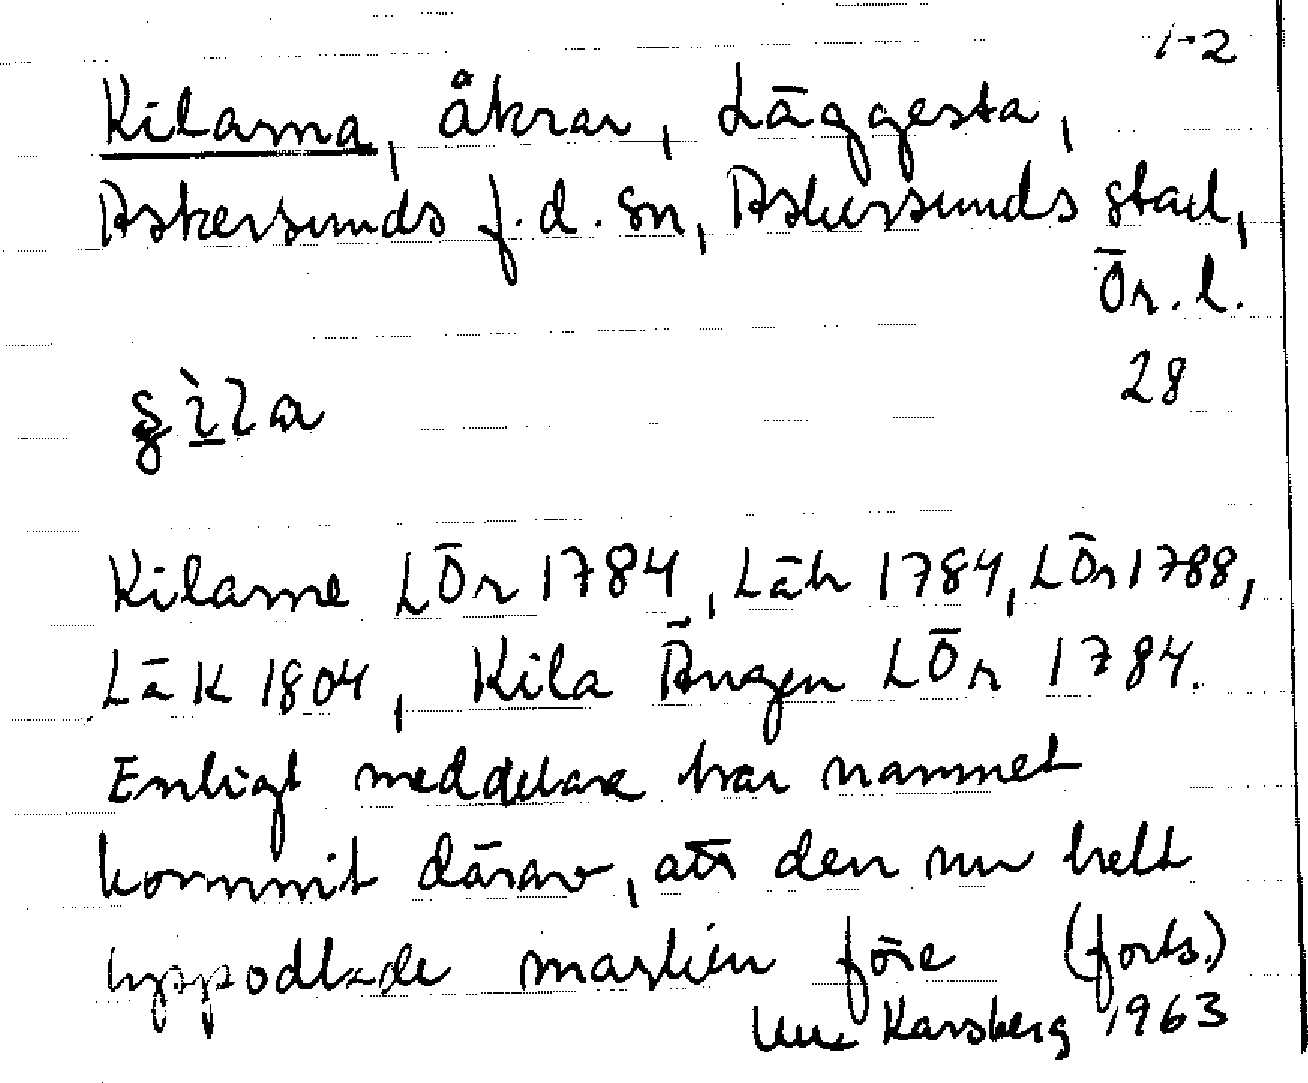 1-2
Kilarna, åkrar, Läggesta,
Askersunds f.d. sn, Askersunds stad,
Ör. l.
28
Kilarne LÖr 1784, Läh 1784, LÖr 1788,
LäK 1804, Kila Ängen LÖr 1784.
Enligt meddelare har namnet
kommit därav, att den nu helt
uppodlade marken före (forts.)
Karsberg 1963